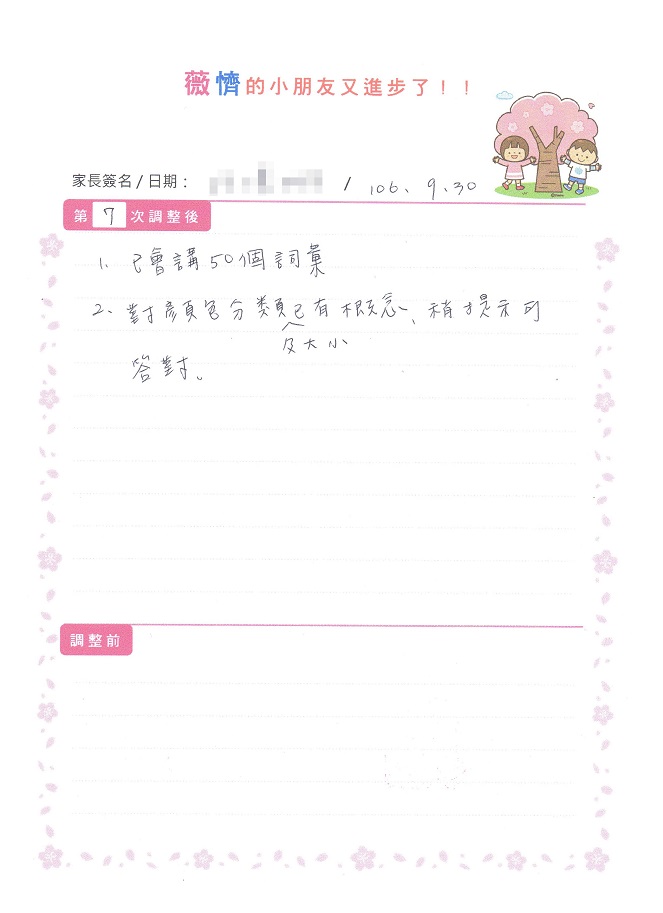 薇憐的小朋友又進步了！！
家長簽名/日期： / 106、9、30
第 7 次調整後
1、已會講50個詞彙
2、對顏色分類及大小已有概念、稍提示可
答對。
調整前